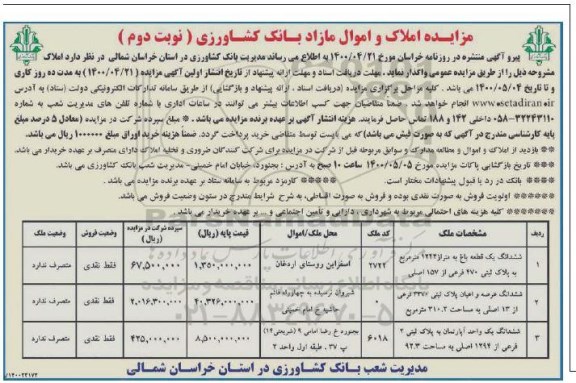 مزایده املاک و اموال مازاد بانک کشاورزی ( نوبت دوم )
پیرو آگهی منتشره در روزنامه خراسان مورخ ۱۴۰۰/۰۴/۲۱ به اطلاع می رساند مدیریت بانک کشاورزی در استان خراسان شمالی در نظر دارد املاک
مشروحه ذیل را از طریق مزایده عمومی واگذار نماید. مهلت دریافت اسناد و مهلت ارائه پیشنهاد از تاریخ انتشار اولین آگهی مزایده ( ۱۴۰۰/۰۴/۲۱ ) به مدت ده روز کاری
تا تاریخ ۱۴۰۰/۰۵/۰۴ می باشد. کلیه مراحل برگزاری مزایده (دریافت اسناد ، ارائه پیشنهاد و بازگشایی) از طریق سامانه تدارکات الکترونیکی دولت (ستاد) به آدرس
www.setadiran.ir انجام خواهد شد. ضمنا متقاضیان جهت کسب اطلاعات بیشتر می توانند در ساعات اداری با شماره تلفن های مدیریت شعب به شماره
۰۵۸-۳۲۲۴۳۱۱۰ داخلی ۱۴۲ و ۱۸۸ تماس حاصل فرمایند. هزینه انتشار آگهی بر عهده برنده مزایده می باشد. * مبلغ سپرده شرکت در مزایده (معادل ۵ درصد مبلغ
پایه کارشناسی مندرج در آگهی که به صورت فیش می باشد) که می بایست توسط متقاضی خرید پرداخت گردد. ضمناً هزینه خرید اوراق مبلغ ۱۰۰۰۰۰۰ ریال می باشد.
** بازدید از املاک و اموال و مطالعه مدارک و سوابق مربوطه قبل از شرکت در مزایده برای شرکت کنندگان ضروری و تخلیه املاک دارای متصرف بر عهده خریدار می باشد.
*** تاریخ بازگشایی پاکات مزایده مورخ ۱۴۰۰/۰۵/۰۵ ساعت ۱۰ صبح به آدرس : بجنورد- خیابان امام خمینی- مدیریت شعب بانک کشاورزی می باشد.
**** بانک در رد یا قبول پیشنهادات مختار است. ***** کارمزد مربوط به سامانه ستاد بر عهده برنده مزایده می باشد .
****** اولویت فروش به صورت نقدی بوده و فروش به صورت اقساطی، به شرح شرایط مندرج در ستون وضعیت فروش می باشد.
******* کلیه هزینه های احتمالی مربوط به شهرداری ، دارایی و تأمین اجتماعی و ... بر عهده خریدار می باشد.
ردیف مشخصات ملک کد ملک محل ملک/اموال قیمت پایه (ریال) سپرده شرکت در مزایده (ریال) وضعیت فروش وضعیت ملک
۱ ششدانگ یک قطعه باغ به متراژ ۱۲۲۴ مترمربع به پلاک ثبتی ۴۷۰ فرعی از ۱۵۷ اصلی ۲۷۲۲ اسفراین روستای اردغان ۱,۳۵۰,۰۰۰,۰۰۰ ۶۷,۵۰۰,۰۰۰ فقط نقدی متصرف ندارد
۲ ششدانگ عرصه و اعیان پلاک ثبتی ۳۳۷۷ فرعی از ۱۳ اصلی به مساحت ۳۱۰.۲ مترمربع ۰ شیروان نرسیده به چهارراه قائم حاشیه خ امام خمینی ۴۰,۳۲۶,۰۰۰,۰۰۰ ۲,۰۱۶,۳۰۰,۰۰۰ فقط نقدی متصرف ندارد
۳ ششدانگ یک واحد آپارتمان به پلاک ثبتی ۲ فرعی از ۱۲۹۴ اصلی به مساحت ۹۲.۳ ۶۰۱۸ بجنورد خ رضا امامی ۹ (شریعتی۱۲) پ ۳۷ . طبقه اول واحد ۲ ۸,۵۰۰,۰۰۰,۰۰۰ ۴۲۵,۰۰۰,۰۰۰ فقط نقدی متصرف ندارد
مدیریت شعب بانک کشاورزی در استان خراسان شمالی